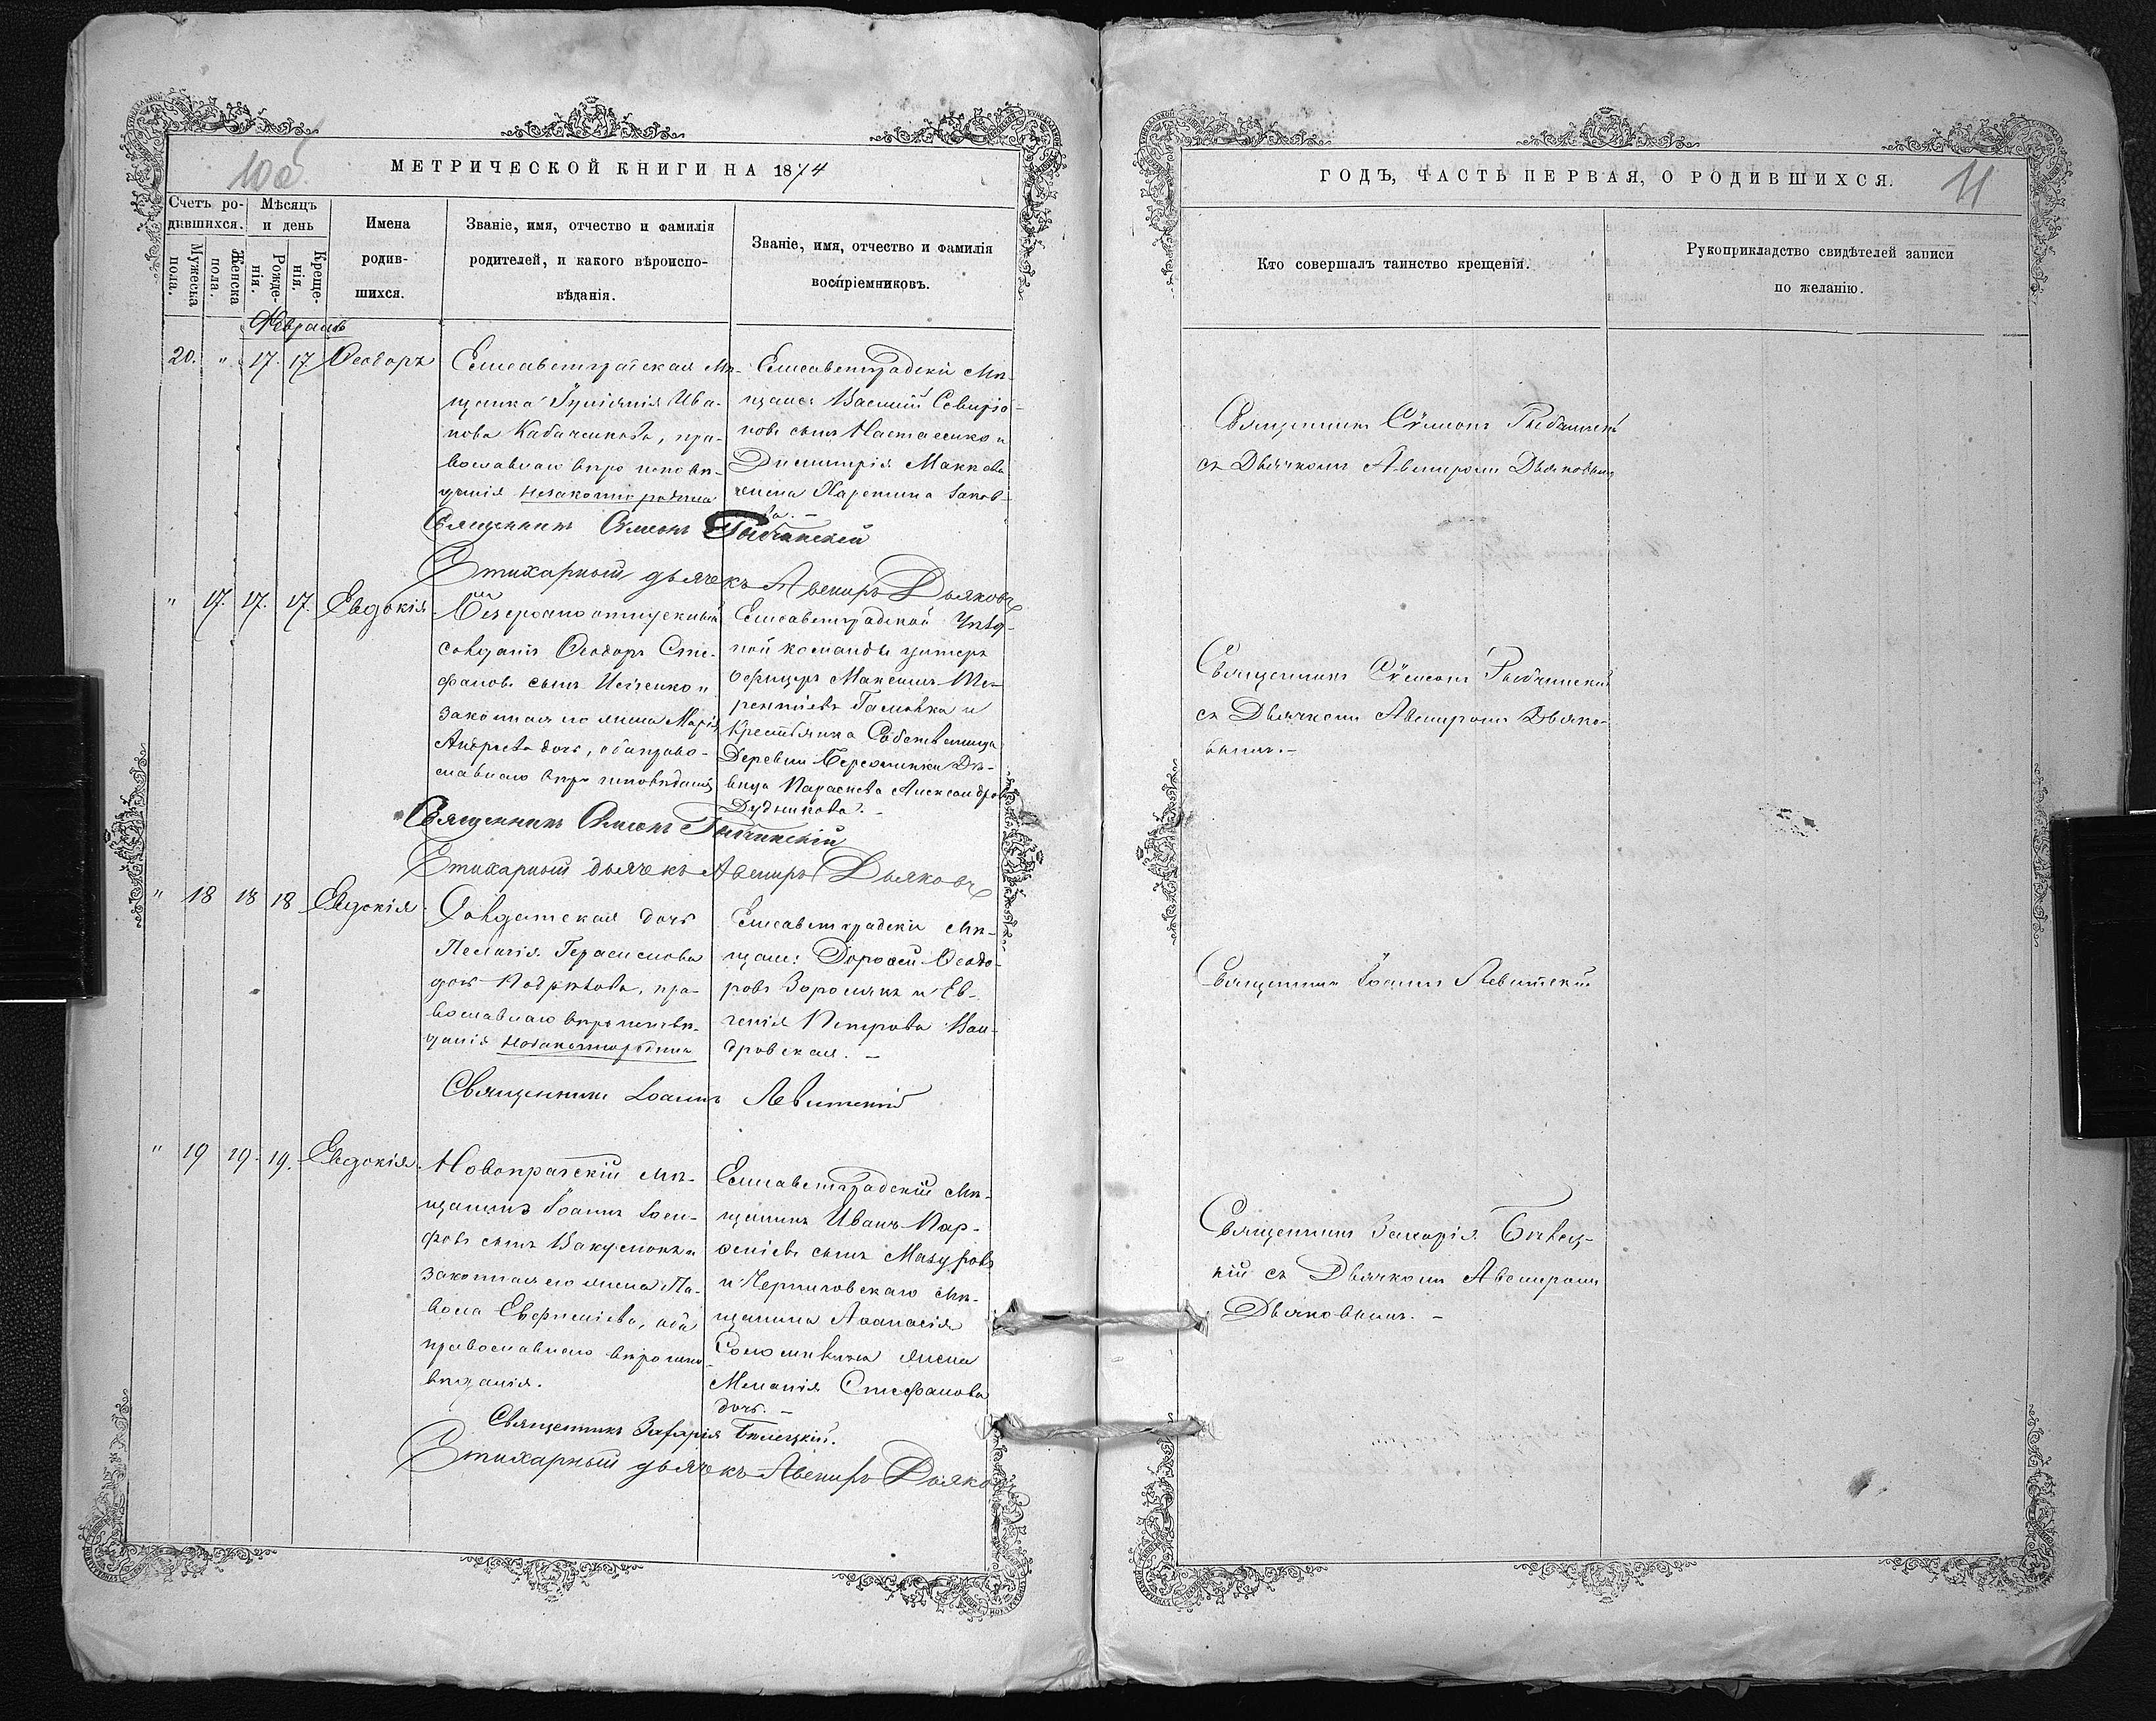 10 об
МЕТРИЧЕСКОЙ КНИГИ НА 1874
Счетъ ро-
дившихся.
Мѣсяцъ
и день
Мужеска
пола.
Женска
пола.
Рожде-
нія.
Креще-
нія.
Имена
родив-
шихся.
Званіе, имя, отчество и фамилія
родителей, и какого вѣроиспо-
вѣданія.
Званіе, имя, отчество и фамилія
воспріемниковъ.
Февраль
20. " 17. 17 Ѳеодоръ
Елисаветградская Мѣ-
щанка Іуліянія Ива-
нова Кабаченкова, пра-
вославнаго вѣроисповѣ-
данія незаконно рождена
Елисаветградскій Мѣ-
щанъ Василій Севиріа-
новъ сынъ Настасенко и
Димитрія
жена Харитина Іаков-
ва. –
Священникъ Симеонъ Рыбчинскій
Стихарный дьячекъ Авениръ Дьяковъ
" 17. 17. 17. Евдокія
Безсрочно отпускный
солдатъ Ѳеодоръ Сте-
фановъ сынъ Исаенко и
законная его жена Марія
Андреева дочь, оба право-
славнаго вѣроисповѣданія
Елисаветградской Уѣзд-
ной команды унтеръ
офицеръ Максимъ Те-
рентіевъ Гамовка и
крестьянка Собственница
Деревни Березинки Дѣ-
вица Параскева Александрова
Дудникова. –
Священникъ Симеонъ Рыбчинскій
Стихарный дьячекъ Авениръ Дьяковъ
" 18 18 18 Евдокія
Солдатская дочь
Пелагія Герасимова
дочь, пра-
вославнаго вѣроисповѣ-
данія незаконнорождена
Елисаветградскій Мѣ-
щан: Дороѳей Ѳеодо-
ровъ и Ев-
генія Петрова Ван-
дровская. –
Священникъ Іоаннъ Левитскій
" 19 19. 19. Евдокія
Новопражскій мѣ-
щанинъ Іоаннъ Іоси-
фовъ сынъ Вакумовъ и
законная его жена Па-
вола Евфиміева, оба
православнаго вѣроиспо-
вѣданія.
Елисаветградскій Мѣ-
щанинъ Иванъ Пар-
ѳеніевъ сынъ Мазуровъ
и Черниговскаго Мѣ-
щанина Аѳанасія
жена
Меланія Стефанова
дочь. –
Священникъ Захарія Билецкій.
Стихарный дьячекъ Авениръ Дьяковъ
ГОДЪ, ЧАСТЬ ПЕРВАЯ, О РОДИВШИХСЯ.
11
Кто совершалъ таинство крещенія.
Рукоприкладство свидѣтелей записи
по желанію.
Священникъ Сѵмеонъ Рыбчинскій
съ Дьячкомъ Авениромъ Дьяковымъ
Священникъ Сѵмеонъ Рыбчинскій
съ Дьячкомъ Авениромъ Дьяко-
вымъ. –
Священникъ Іоаннъ Левитскій
Священникъ Захарія Бѣлец-
кій съ Дьячкомъ Авениромъ
Дьяковымъ. –